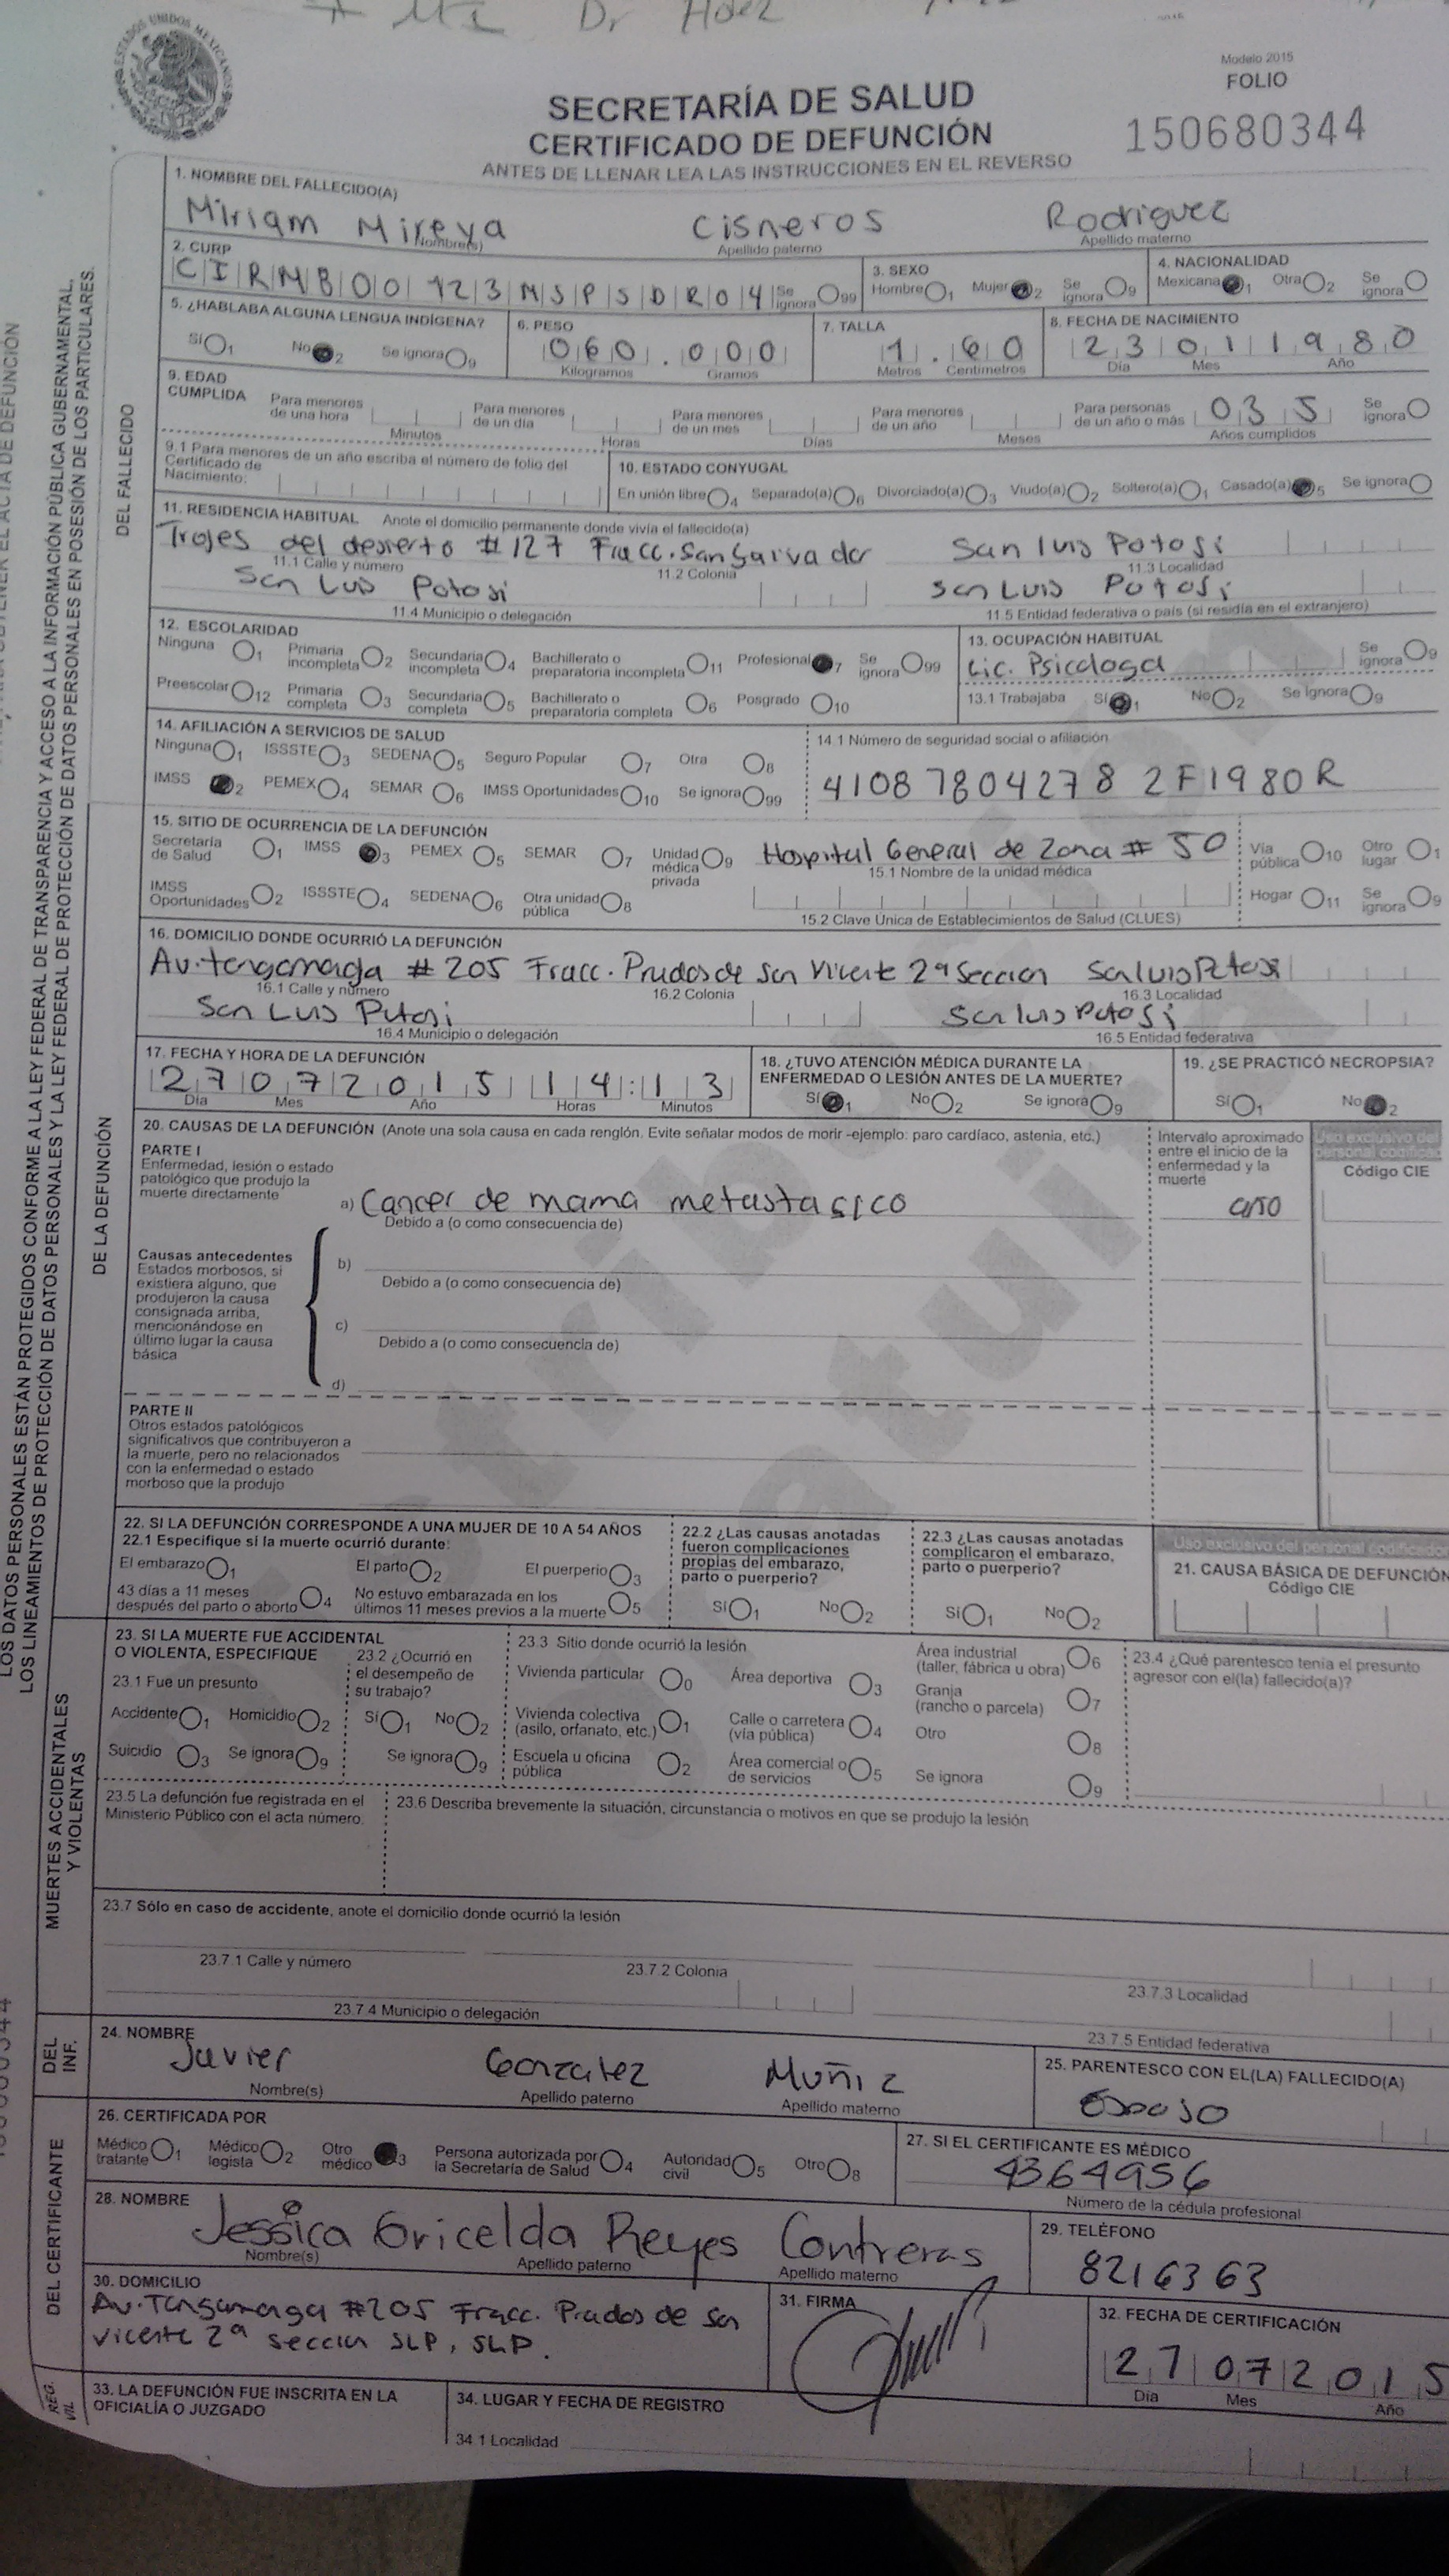 Dr
Modelo 2015
FOLIO
150680344
SECRETARÍA DE SALUD
CERTIFICADO DE DEFUNCIÓN
ANTES DE LLENAR LEA LAS INSTRUCCIONES EN EL REVERSO
ESTADOS UNIDOS MEXICANOS
LOS DATOS PERSONALES ESTÁN PROTEGIDOS CONFORME A LA LEY FEDERAL DE TRANSPARENCIA Y ACCESO A LA INFORMACIÓN PÚBLICA GUBERNAMENTAL,
LOS LINEAMIENTOS DE PROTECCIÓN DE DATOS PERSONALES Y LA LEY FEDERAL DE PROTECCIÓN DE DATOS PERSONALES EN POSESIÓN DE LOS PARTICULARES.
DEL FALLECIDO
1. NOMBRE DEL FALLECIDO(A)
Miriam Mireya Cisneros Rodriguez
Nombre(s) Apellido paterno Apellido materno
2. CURP
CIRM800123MSPSDR04 Se ignora 99
3. SEXO
Hombre 1 Mujer 2 Se ignora 9
4. NACIONALIDAD
Mexicana 1 Otra 2 Se ignora
5. ¿HABLABA ALGUNA LENGUA INDÍGENA?
Sí 1 No 2 Se ignora 9
6. PESO
060.000
Kilogramos Gramos
7. TALLA
1.60
Metros Centímetros
8. FECHA DE NACIMIENTO
23011980
Día Mes Año
9. EDAD CUMPLIDA
Para menores de una hora Minutos
Para menores de un día Horas
Para menores de un mes Días
Para menores de un año Meses
Para personas de un año o más 035 Años cumplidos
Se ignora
9.1 Para menores de un año escriba el número de folio del Certificado de Nacimiento:
10. ESTADO CONYUGAL
En unión libre 4 Separado(a) 6 Divorciado(a) 3 Viudo(a) 2 Soltero(a) 1 Casado(a) 5 Se ignora
11. RESIDENCIA HABITUAL Anote el domicilio permanente donde vivía el fallecido(a)
Trojes del desierto #127 Fracc. San Salvador San luis Potosi
11.1 Calle y número 11.2 Colonia 11.3 Localidad
San Luis Potosi San Luis Potosi
11.4 Municipio o delegación 11.5 Entidad federativa o país (si residía en el extranjero)
12. ESCOLARIDAD
Ninguna 1 Primaria incompleta 2 Secundaria incompleta 4 Bachillerato o preparatoria incompleta 11 Profesional 7 Se ignora 99
Preescolar 12 Primaria completa 3 Secundaria completa 5 Bachillerato o preparatoria completa 6 Posgrado 10
13. OCUPACIÓN HABITUAL
Lic. Psicologa Se ignora 9
13.1 Trabajaba Sí 1 No 2 Se ignora 9
14. AFILIACIÓN A SERVICIOS DE SALUD
Ninguna 1 ISSSTE 3 SEDENA 5 Seguro Popular 7 Otra 8
IMSS 2 PEMEX 4 SEMAR 6 IMSS Oportunidades 10 Se ignora 99
14.1 Número de seguridad social o afiliación
4108 7804278 2F1980R
DE LA DEFUNCIÓN
15. SITIO DE OCURRENCIA DE LA DEFUNCIÓN
Secretaría de Salud 1 IMSS 3 PEMEX 5 SEMAR 7 Unidad médica privada 9
IMSS Oportunidades 2 ISSSTE 4 SEDENA 6 Otra unidad pública 8
Hospital General de Zona # 50
15.1 Nombre de la unidad médica
15.2 Clave Única de Establecimientos de Salud (CLUES)
Vía pública 10 Otro lugar 1
Hogar 11 Se ignora 9
16. DOMICILIO DONDE OCURRIÓ LA DEFUNCIÓN
Av. tangamaga #205 Fracc. Prados de San Vicente 2ª Seccion San luis Potosi
16.1 Calle y número 16.2 Colonia 16.3 Localidad
San Luis Potosi San luis Potosi
16.4 Municipio o delegación 16.5 Entidad federativa
17. FECHA Y HORA DE LA DEFUNCIÓN
27072015 14:13
Día Mes Año Horas Minutos
18. ¿TUVO ATENCIÓN MÉDICA DURANTE LA ENFERMEDAD O LESIÓN ANTES DE LA MUERTE?
Sí 1 No 2 Se ignora 9
19. ¿SE PRACTICÓ NECROPSIA?
Sí 1 No 2
20. CAUSAS DE LA DEFUNCIÓN (Anote una sola causa en cada renglón. Evite señalar modos de morir -ejemplo: paro cardíaco, astenia, etc.)
Intervalo aproximado entre el inicio de la enfermedad y la muerte
Uso exclusivo del personal codificador
Código CIE
PARTE I
Enfermedad, lesión o estado patológico que produjo la muerte directamente
a) Cancer de mama metastasico año
Debido a (o como consecuencia de)
Causas antecedentes
Estados morbosos, si existiera alguno, que produjeron la causa consignada arriba, mencionándose en último lugar la causa básica
b)
Debido a (o como consecuencia de)
c)
Debido a (o como consecuencia de)
d)
PARTE II
Otros estados patológicos significativos que contribuyeron a la muerte, pero no relacionados con la enfermedad o estado morboso que la produjo
Distribución gratuita
22. SI LA DEFUNCIÓN CORRESPONDE A UNA MUJER DE 10 A 54 AÑOS
22.1 Especifique si la muerte ocurrió durante:
El embarazo 1 El parto 2 El puerperio 3
43 días a 11 meses después del parto o aborto 4 No estuvo embarazada en los últimos 11 meses previos a la muerte 5
22.2 ¿Las causas anotadas fueron complicaciones propias del embarazo, parto o puerperio?
Sí 1 No 2
22.3 ¿Las causas anotadas complicaron el embarazo, parto o puerperio?
Sí 1 No 2
Uso exclusivo del personal codificador
21. CAUSA BÁSICA DE DEFUNCIÓN
Código CIE
MUERTES ACCIDENTALES Y VIOLENTAS
23. SI LA MUERTE FUE ACCIDENTAL O VIOLENTA, ESPECIFIQUE
23.1 Fue un presunto
Accidente 1 Homicidio 2
Suicidio 3 Se ignora 9
23.2 ¿Ocurrió en el desempeño de su trabajo?
Sí 1 No 2
Se ignora 9
23.3 Sitio donde ocurrió la lesión
Vivienda particular 0 Área deportiva 3 Área industrial (taller, fábrica u obra) 6
Vivienda colectiva (asilo, orfanato, etc.) 1 Calle o carretera (vía pública) 4 Granja (rancho o parcela) 7
Otro 8
Escuela u oficina pública 2 Área comercial o de servicios 5 Se ignora 9
23.4 ¿Qué parentesco tenía el presunto agresor con el(la) fallecido(a)?
23.5 La defunción fue registrada en el Ministerio Público con el acta número:
23.6 Describa brevemente la situación, circunstancia o motivos en que se produjo la lesión
23.7 Sólo en caso de accidente, anote el domicilio donde ocurrió la lesión
23.7.1 Calle y número 23.7.2 Colonia 23.7.3 Localidad
23.7.4 Municipio o delegación 23.7.5 Entidad federativa
DEL INF.
24. NOMBRE
Javier Gonzalez Muñiz
Nombre(s) Apellido paterno Apellido materno
25. PARENTESCO CON EL(LA) FALLECIDO(A)
Esposo
DEL CERTIFICANTE
26. CERTIFICADA POR
Médico tratante 1 Médico legista 2 Otro médico 3 Persona autorizada por la Secretaría de Salud 4 Autoridad civil 5 Otro 8
27. SI EL CERTIFICANTE ES MÉDICO
4364956
Número de la cédula profesional
28. NOMBRE
Jessica Gricelda Reyes Contreras
Nombre(s) Apellido paterno Apellido materno
29. TELÉFONO
8216363
30. DOMICILIO
Av. Tangamaga #205 Fracc. Prados de San
Vicente 2ª seccion SLP, SLP.
31. FIRMA
32. FECHA DE CERTIFICACIÓN
27072015
Día Mes Año
REG.
33. LA DEFUNCIÓN FUE INSCRITA EN LA OFICIALÍA O JUZGADO
34. LUGAR Y FECHA DE REGISTRO
34.1 Localidad